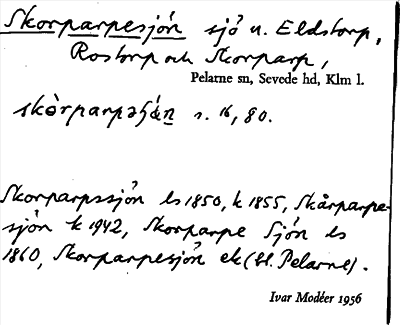 Skorparpesjön sjö u. Eldstorp,
Rostorp och Skorparp,
Pelarne sn, Sevede hd, Klm l.
skòrparpəʃɷ́n s. 16, 80.
Skorparpssjön ls 1850, k 1855, Skårparpe-
sjön k 1942, Skorparpe Sjön ls
1860, Skorparpesjön ek (H. Pelarne).
Ivar Modéer 1956